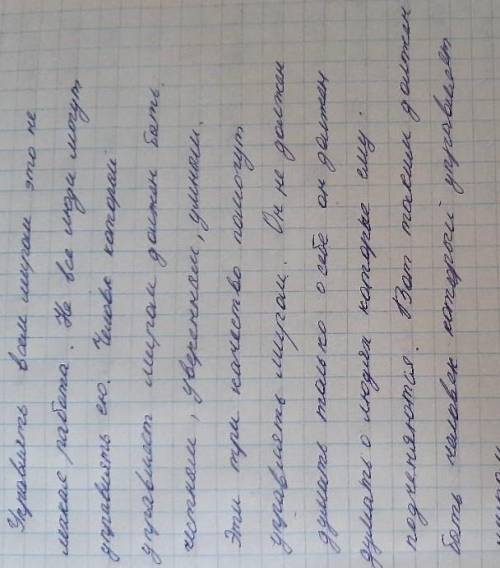 Управлять всем миром это не
легкая работа. Не все люди могут
управлять ею. Человек который
управляет миром должен быть.
честным, уверенным, умным.
Эти три качество помогут
управлять миром. Он не должен
думать только о себе он должен
думать о людях которые ему.
подченяются. Вот таким должен
быть человек который управляет